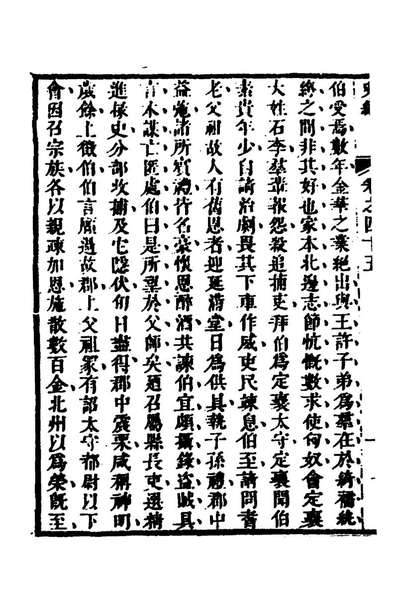 史緯 卷之四十五
伯受焉數年金華之業絕出與王許子弟為羣在於綺襦紈
絝之間非其好也家本北邊志節忼慨數求使匈奴會定襄
大姓石李羣輩報怨殺追捕吏拜伯為定襄太守定襄聞伯
素貴年少自請治劇畏其下車作威吏民竦息伯至請問耆
老父祖故人有舊恩者迎延滿堂日為供具執子孫禮郡中
益弛諸所賓禮皆名豪懷恩醉酒共諫伯宜頗攝錄盜賊具
言本謀亡匿處伯曰是所望於父師矣廼召屬縣長吏選精
進掾史分部收捕及它隱伏旬日盡得郡中震栗咸稱神明
歲餘上徵伯伯言願過故郡上父祖冢有詔太守都尉以下
會因召宗族各以親疎加恩施散數百金北州以為榮既至